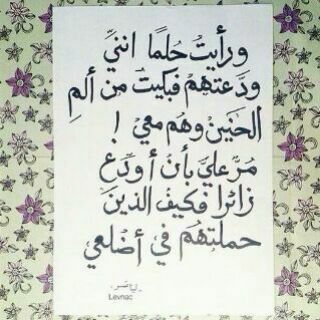 ورأيتُ حُلمًا انني
ودَّعتهمْ فبكيتُ من ألمِ
الحَنينْ وهُم معي !
مُرّ عليَّ بأن أودّع
زائرا فكيفَ الذينَ
حملتهُم في أضلعي
Levnac